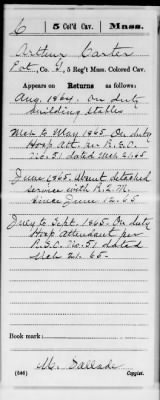 C 5 Col'd Cav. Mass.
Arthur Carter
Pvt, Co. G, 5 Reg't Mass. Colored Cav.
Appears on
Returns as follows:
Aug. 1864. On duty
building stables
Mch to May 1865. On duty
Hosp Att. per R.S.O.
No. 51 dated Mch 21/65
June 1865. Absent detached
service with R.Q.M.
since June 12. 65
July to Sept. 1865. On duty
Hosp attendant per
R.S.O. No. 51 dated
Mch 21. 65.
Book mark:
M. Sallade
(546) Copyist.